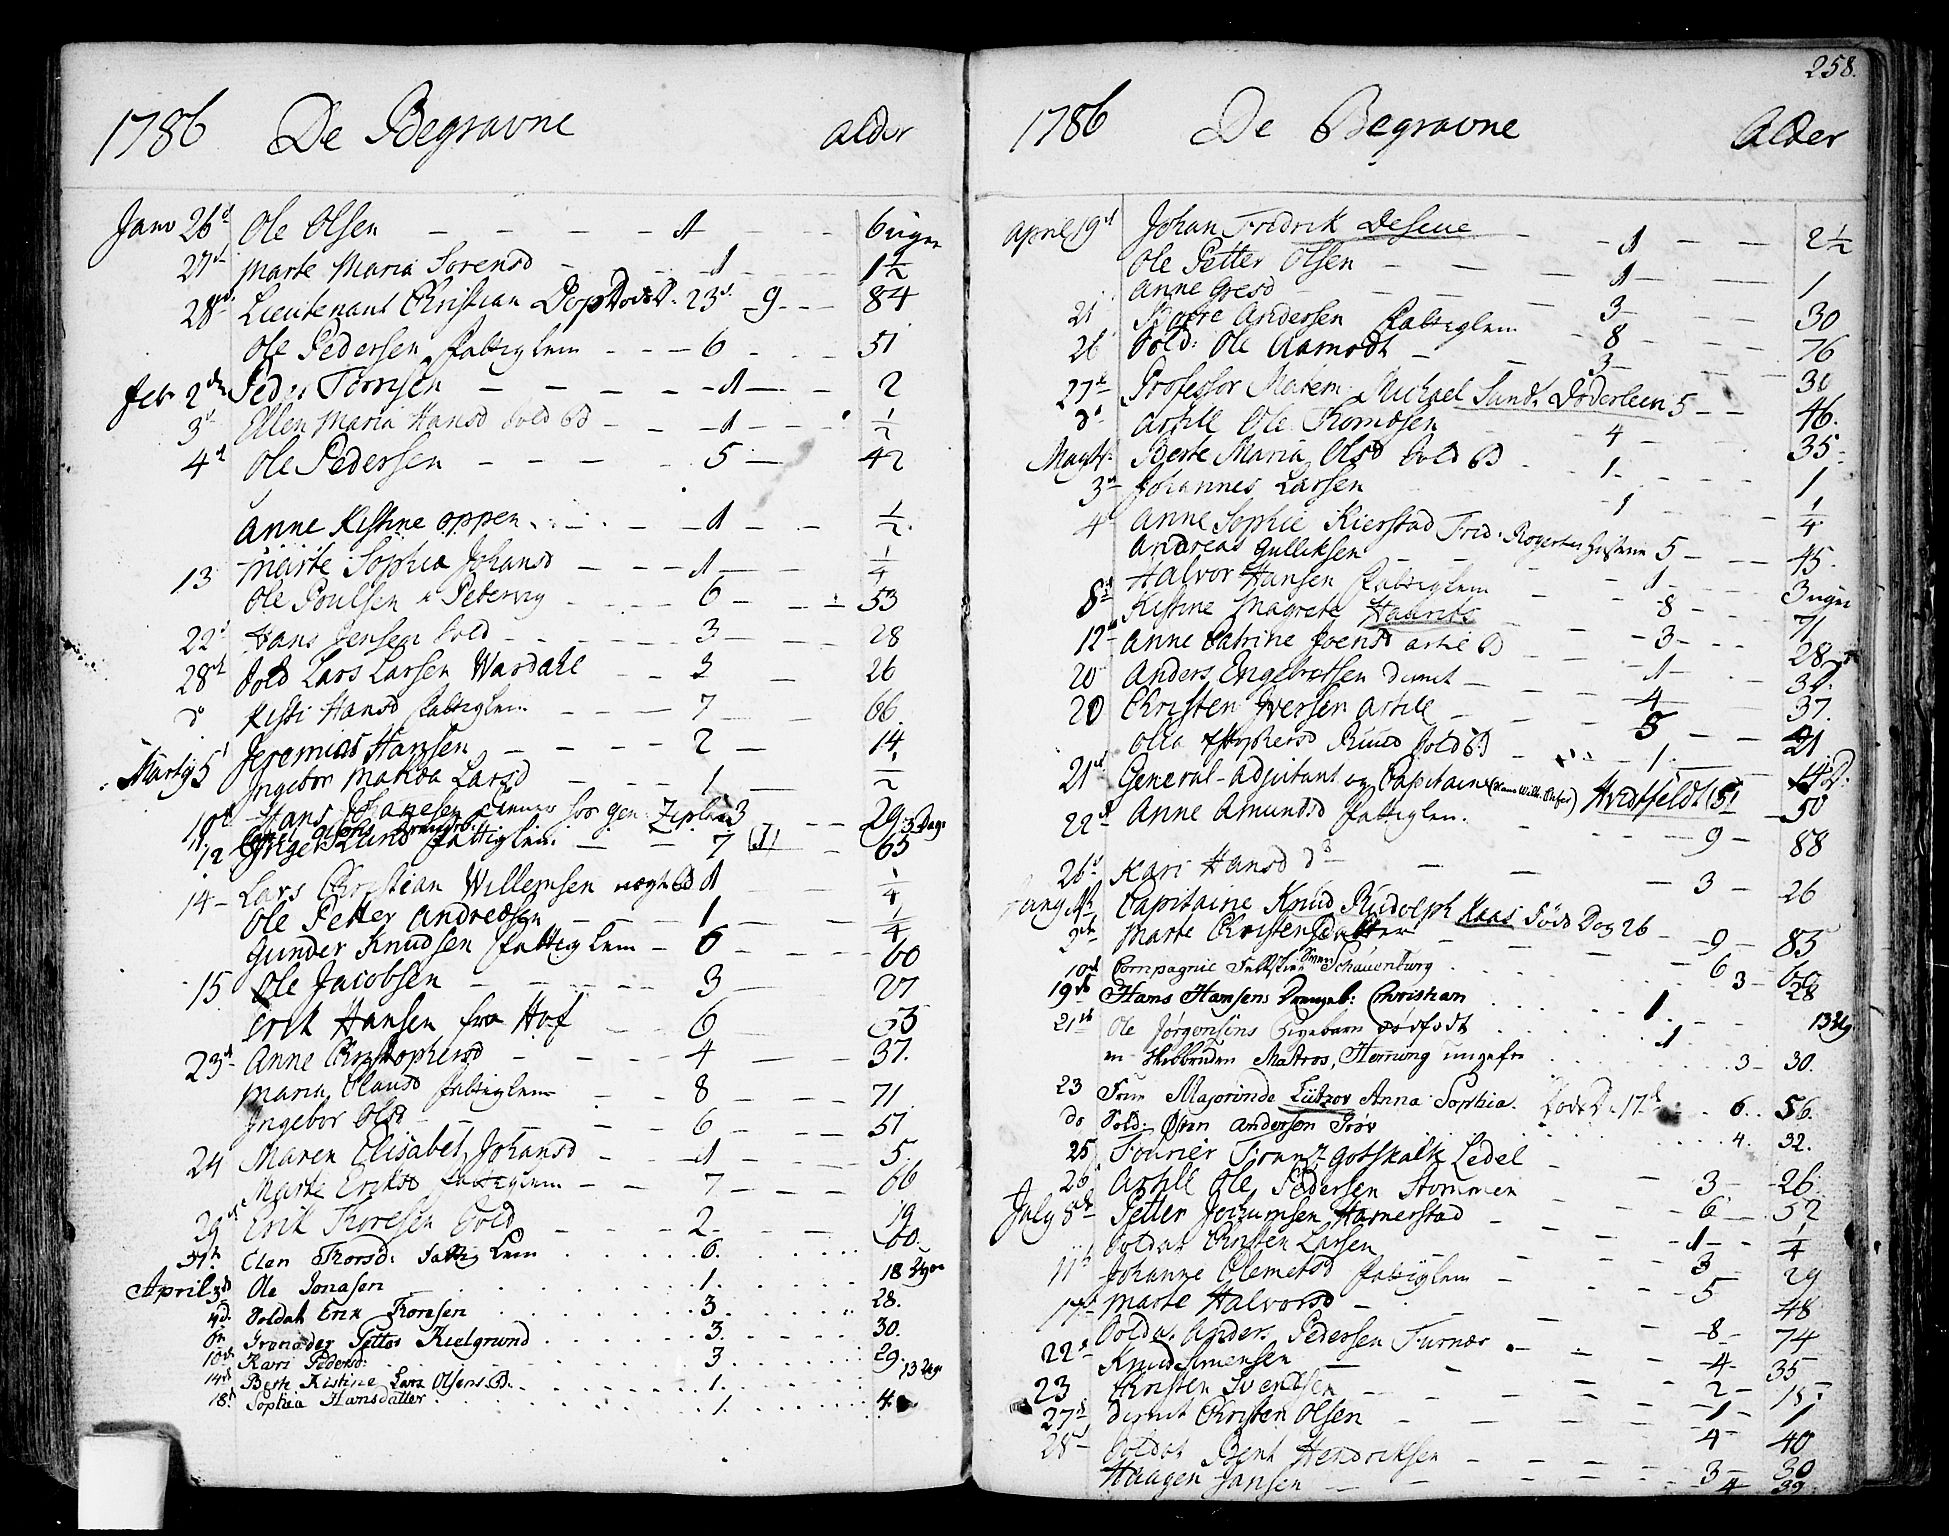 1786 De Begravne Alder
Janv 26d Ole Olsen 1 6 uger
27d Marte Maria Sorensd 1 1 1/2
28d Lieutenant Christian Dop Døde D. 23d 9 84
Ole Pedersen fattiglem 6 51
Feb 2den Peder Torrisen 1 2
3d Ellen Maria Hansd Sold B 1 1/2
4d Ole Pedersen 5 42
Anne Kistine Oppen 1 1/2
Marte Sophia Johansd 1 1/4
13 Ole Poulsen Petervig 6 53
22d Hans Jensen Sold 3 28
28d Sold Lars Larsen Wardahl 3 26
do Kisti Hansd fattiglem 7 66
Jeremias Hansen 2 14
Marty 5d Ingebor Mathea Larsd 1 1/2
10d Hans Johanesen for gen. 3 29
11 3 Dage
12 Inger Lund fattiglem 7 (1) 65
14 Lars Christian Willemsen 1 1/4
Ole Petter Andreasen 1 1/4
Gunder Knudsen fattiglem 6 60
15 Ole Jacobsen 3 27
Erik Hansen fra Hof 6 53
23d Anne Christophersd 4 37.
Maria Clausd fattiglem 8 71
Ingebor Olsd 6 57
24 Maren Elisabet Johansd 1 5
Marte Eriksd fattiglem 7 66
29d Erik Thoresen Sold 2 19
31te Elen Thorsd: fattig Lem 6. 60.
April 3d Ole Jonasen 1. 18 Uger
4d. Soldat Erik Thoresen 3. 28.
6te Grenader Petter Kielgrund 3. 30.
10de Kari Pedersd: 3 29
14d Berte Kistine Lars Olsens B. 1. 13 Uger
18d Sophia Hansdatter 1. 4
258.
1786 De Begravne Alder
April 19d Johan Fredrik Deseue 1 2 1/2
Ole Petter Olsen 1 1
Anne Gresd 3 30
21 Andersen fattiglem 8 76
26 Sold: Ole Aamodt 3 30
27d Professor Matem: Michael Sund. Døderleen 5 46.
do Artill Ole Thomesen 4 35
May 1t Berte Maria Olsd Sold B 1 1
3d Johannes Larsen 1 1/4
4d Anne Sophie Kierstad Fred: 5 45.
Andreas Gulliksen 1 3 uger
8d Halvor Hansen fattiglem 8 71
Kistine Magrete Haarits 3 28
12d Anne Catrine Joensd Artil B 1
20 Anders Engebretsen dimit 4 37.
20 Christen Iversen Artill 5
Olia Christophersd Ruud Sold B 1
21d General-Adjutant og Capitain (Hans Will. ) Hvidtfeldt 5 50
22d Anne Amundsd fattiglem. 9 88
26d Kari Hansd do 3 26
Juny Capitaine Knud Rudolph Kaas Døde Dag 26 9 83
Marte Christensdatter 6
10d Compagnie Schauenburg 3 28
19de Hans Hansens Drengeb: Christian 1. 13 Ug
21de Ole Jørgensens Pigebarn dødfødt 1
en Matros, Hornung ungefer 3 30.
23 Frue Majorinde Lützov Anna Sophia. Døde D. 17d 6. 56.
do Sold: Østen Andersen Trøv 4. 32.
25 Fourier Frantz Gotskalk Ledel
26 Artill Ole Pedersen Strommen 3 26
July 8de Petter Jochumsen Hamerstad 6 52
Soldat Christen Larsen 1 1/4
11te Johanne Clemetsd fattiglem 3 29
17d Marte Halvorsd 5 48
Soldat Anders Pedersen Furnær 8 74
22d Knud Simensen 4 35
23 Christen Svendsen 2 15
27d dimit Christen Olsen 1 1
28d Soldat Bent Hendriksen 4 40
Haagen Jansen 3 30
4 39